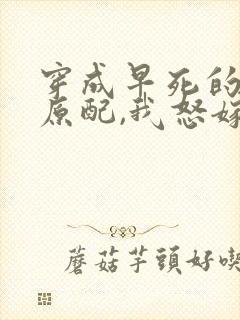 穿成早死的
原配,我怒嫁
蘑菇芋頭好喫